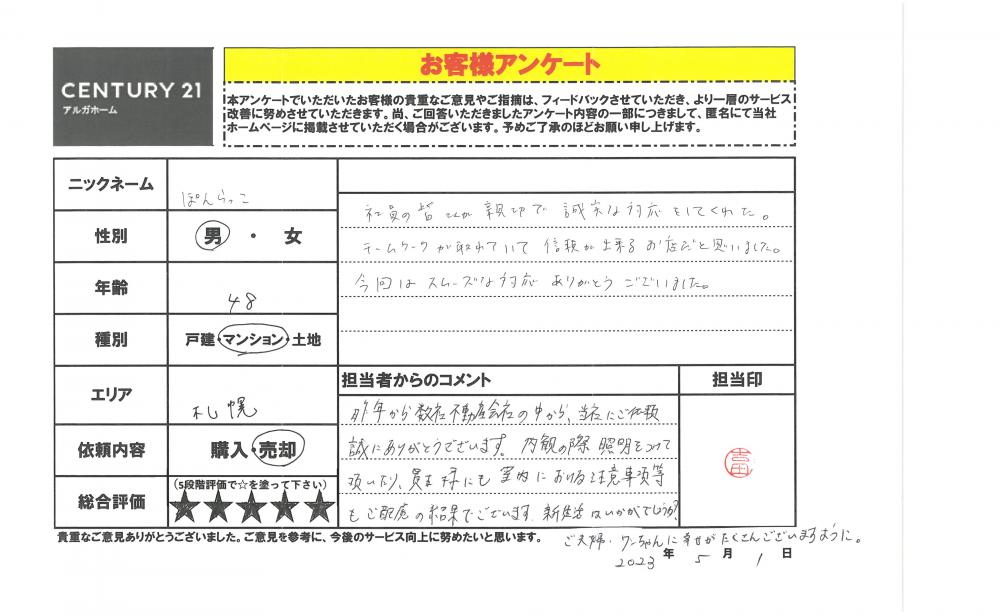 お客様アンケート
CENTURY 21
アルガホーム
本アンケートでいただいたお客様の貴重なご意見やご指摘は、フィードバックさせていただき、より一層のサービス
改善に努めさせていただきます。尚、ご回答いただきましたアンケート内容の一部につきまして、匿名にて当社
ホームページに掲載させていただく場合がございます。予めご了承のほどお願い申し上げます。
ニックネーム
ぽんらっこ
性別
男・女
年齢
48
種別
戸建・マンション・土地
エリア
札幌
依頼内容
購入・売却
総合評価
(5段階評価で☆を塗って下さい)
★★★★★
社員の皆さんが親切で誠実な対応をしてくれた。
チームワークが取れていて信頼が出来るお店だと思いました。
今回はスムーズな対応ありがとうございました。
担当者からのコメント
担当印
昨年から数社不動産会社の中から、当社にご依頼
誠にありがとうございます。内観の際照明をつけて
頂いたり、買主様にも室内における注意事項等
もご配慮の結果でございます。新生活はいかがでしょうか?
ご夫婦・ワンちゃんに幸せがたくさんございますように。
吉田
貴重なご意見ありがとうございました。ご意見を参考に、今後のサービス向上に努めたいと思います。
2023年5月1日